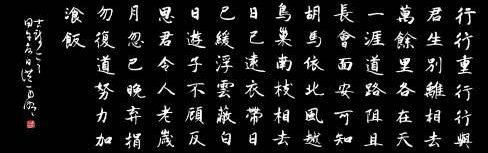 行行重行行與
君生別離相去
萬餘里各在天
一涯道路阻且
長會面安可知
胡馬依北風越
鳥巢南枝相去
日已遠衣帶日
已緩浮雲蔽白
日遊子不顧反
思君令人老歲
月忽已晚棄捐
勿復道努力加
湌飯